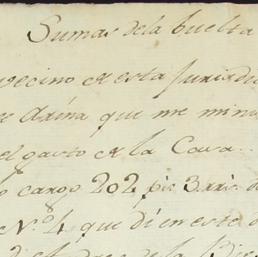 Sumas de la buelta
vecino de esta Jurisdi
de Arina que me mini
el gasto de la Casa..
202 p.s 3 rr.s
N.o 4 que di en este
de la